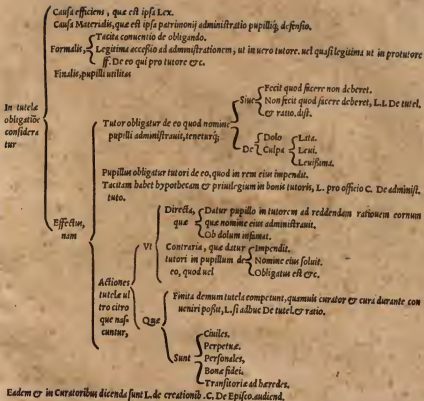 Causa efficiens, quæ est ipsa Lex.
Causa Materialis, quæ est ipsa patrimonij administratio pupilliq; defensio.
Formalis,
Tacita conuentio de obligando.
Legitima accessio ad administrationem, ut in uero tutore. uel quasi legitima ut in protutore
ff. De eo qui pro tutore &c.
Finalis, pupilli utilitas
In tutelæ
obligatiōe
considera
tur
Effectus,
nam
Tutor obligatur de eo quod nomine
pupilli administrauit, teneturq;
Siue
Fecit quod facere non deberet.
Non fecit quod facere deberet, L.1. De tutel.
& ratio. dist.
De
Dolo
Culpa
Lata.
Leui.
Leuissima.
Pupillus obligatur tutori de eo, quod in rem eius impendit.
Tacitam habet hypothecam & priuilegium in bonis tutoris, L. pro officio C. De administ.
tuto.
Actiones
tutelæ ul
tro citro
que nas
cuntur,
Vt
Directa,
quæ
Datur pupillo in tutorem ad reddendam rationem eorum
quæ nomine eius administrauit.
Ob dolum infamat.
Contraria, quæ datur
tutori in pupillum de
eo, quod uel
Impendit.
Nomine eius soluit.
Obligatus est &c.
Quæ
Finita demum tutela competunt, quamuis curator & cura durante con
ueniri possit, L. si adhuc De tutel. & ratio.
Sunt
Ciuiles.
Perpetuæ.
Personales,
Bonæ fidei.
Transitoriæ ad hæredes.
Eadem & in Curatoribus dicenda sunt L. de creationib. C. De Episco. audiend.